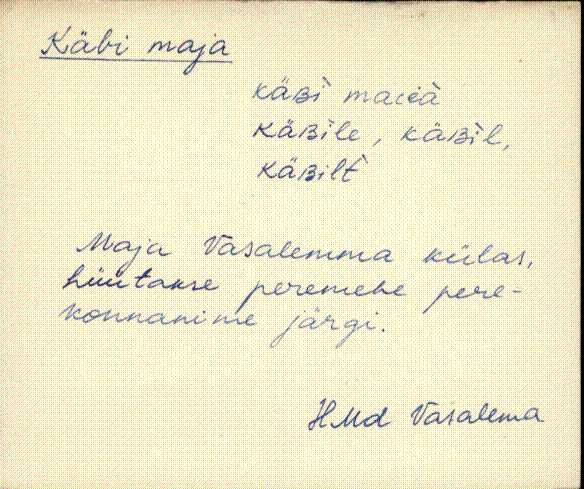 Käbi maja
käʙì maıı̯à
käʙìle, käʙìl,
käʙilt
Maja Vasalemma külas,
hüütakse peremehe pere-
konnanime järgi.
HMd Vasalema